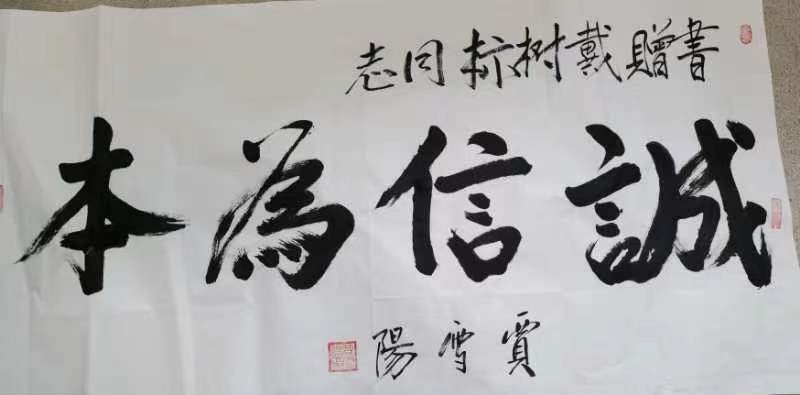 書贈戴树同志
誠信為本
賈雪陽